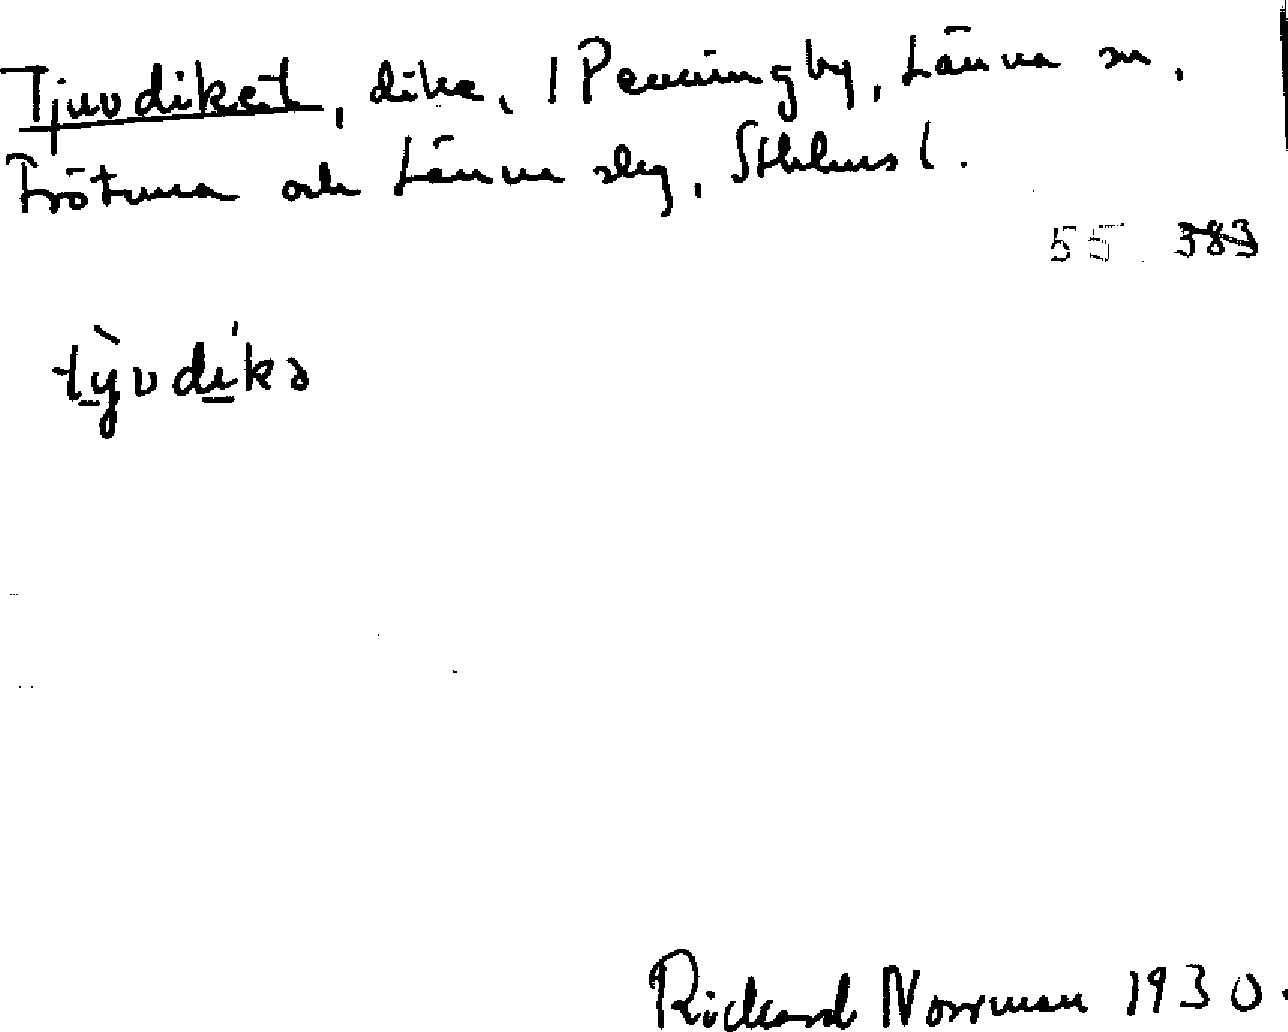 Tjuvdiket, dike, 1 Penningby, Länna sn,
Frötuna och Länna skg, Sthlms l.
55 383
Rickard Norrman 1930.